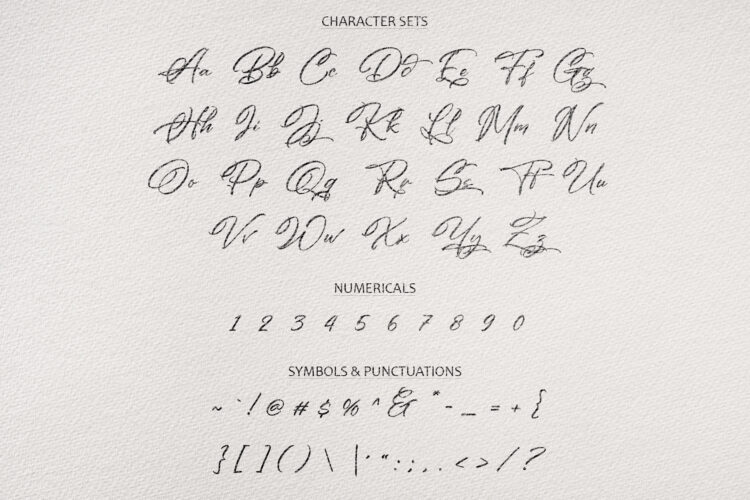 CHARACTER SETS
Aa Bb Cc Dd Ee Ff Gg
Hh Ii Jj Kk Ll Mm Nn
Oo Pp Qq Rr Ss Tt Uu
Vv Ww Xx Yy Zz
NUMERICALS
1 2 3 4 5 6 7 8 9 0
SYMBOLS & PUNCTUATIONS
~ ` ! @ # $ % ^ & * - _ = + {
} [ ] ( ) \ | ' " : ; , . < > / ?